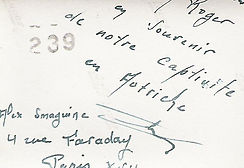 Roger
en Souvenir
de notre Captivité
en Autriche
239
Alex Smaguine
4 rue Faraday
Paris